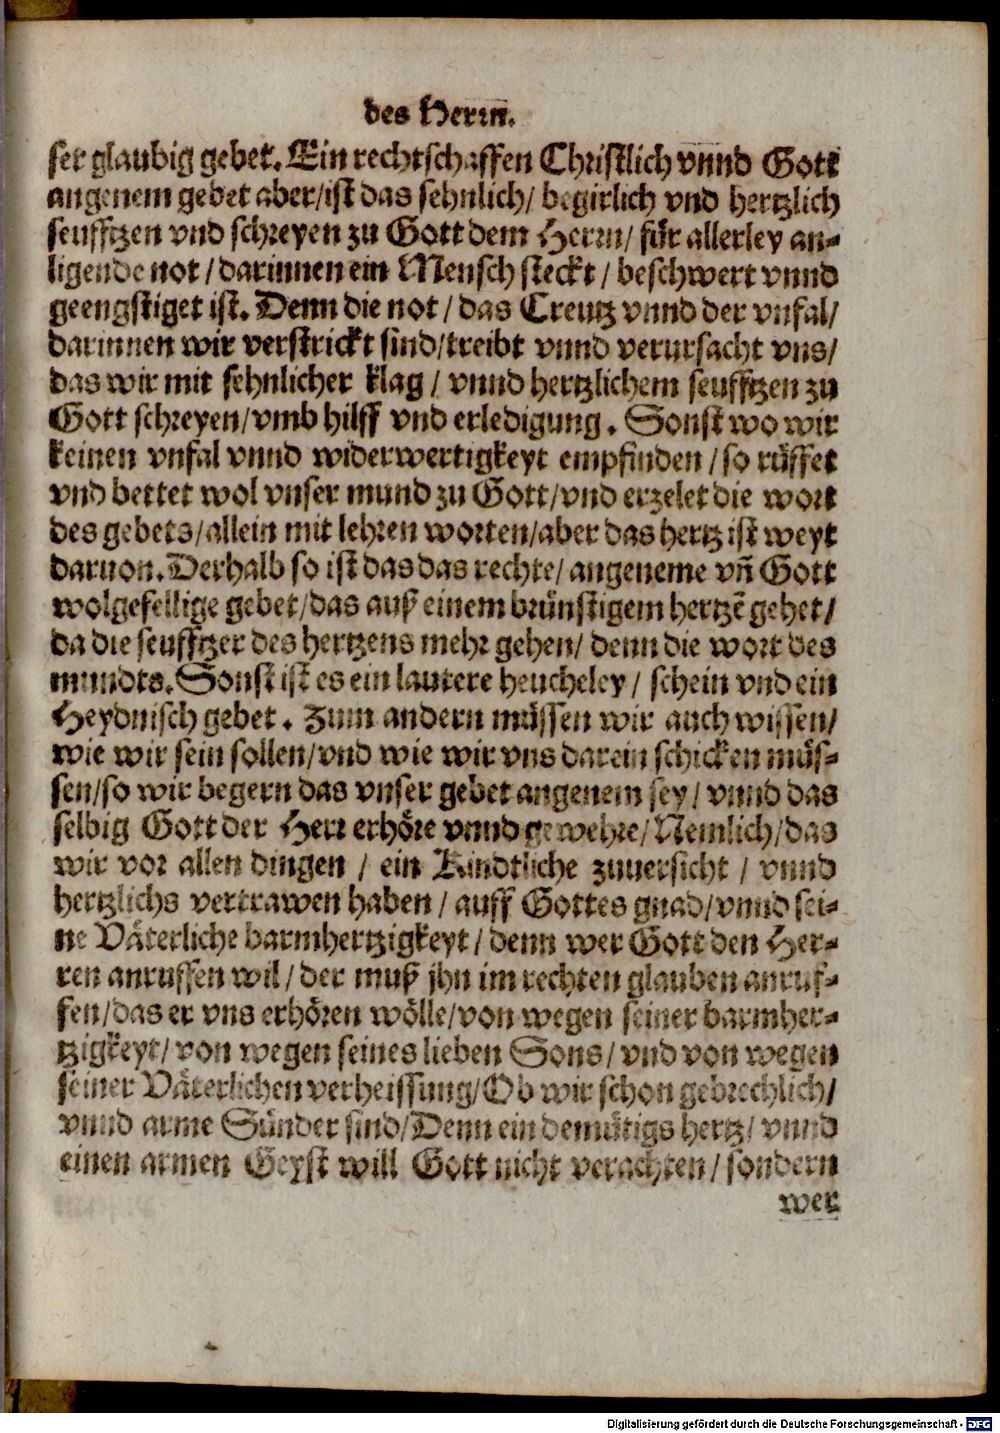 des Herrn.
ser glaubig gebet. Ein rechtschaffen Christlich vnnd Gott
angenem gebet aber/ist das sehnlich/ begirlich vnd hertzlich
seufftzen vnd schreyen zu Gott dem Herrn/ für allerley an-
ligende not/darinnen ein Mensch steckt/ beschwert vnnd
geengstiget ist. Denn die not/ das Creutz vnnd der vnfal/
darinnen wir verstrickt sind/treibt vnnd verursacht vns/
das wir mit sehnlicher klag/ vnnd hertzlichem seufftzen zu
Gott schreyen/vmb hilff vnd erledigung. Sonst wo wir
keinen vnfal vnnd widerwertigkeyt empfinden/so rüffet
vnd bettet wol vnser mund zu Gott/vnd erzelet die wort
des gebets/allein mit lehren worten/aber das hertz ist weyt
daruon. Derhalb so ist das das rechte/ angeneme vñ Gott
wolgefellige gebet/das auß einem brünstigem hertzē gehet/
da die seufftzer des hertzens mehr gehen/ denn die wort des
mundts. Sonst ist es ein lautere heucheley/ schein vnd ein
Heydnisch gebet. Zum andern müssen wir auch wissen/
wie wir sein sollen/vnd wie wir vns darein schicken müs-
sen/so wir begern das vnser gebet angenem sey/ vnnd das
selbig Gott der Herr erhöre vnnd gewehre/Nemlich/das
wir vor allen dingen/ ein Kindtliche zuuersicht/ vnnd
hertzlichs vertrawen haben/ auff Gottes gnad/vnnd sei-
ne Väterliche barmhertzigkeyt/ denn wer Gott den Her-
ren anruffen wil/der muß jhn im rechten glauben anruf-
fen/das er vns erhören wölle/von wegen seiner barmher-
tzigkeyt/von wegen seines lieben Sons/vnd von wegen
seiner Väterlichen verheissung/Ob wir schon gebrechlich/
vnnd arme Sünder sind/Denn ein demütigs hertz/ vnnd
einen armen Geyst will Gott nicht verachten/sondern
wer
Digitalisierung gefördert durch die Deutsche Forschungsgemeinschaft - DFG